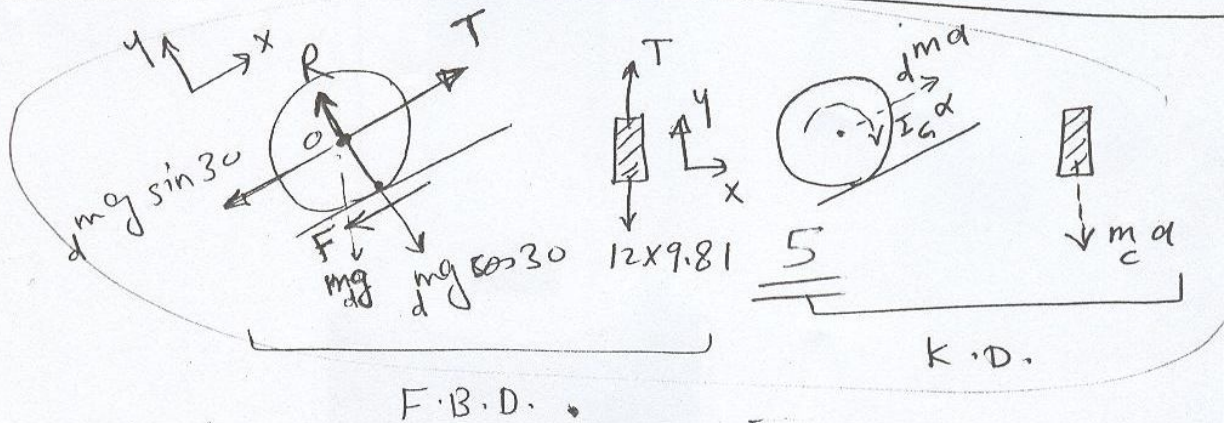 y x R T
O
m_d g sin 30
F
m_d g
m_d g cos 30
T
y
x
12 x 9.81
m_d a
I_G α
5
m_c a
F.B.D.
K.D.